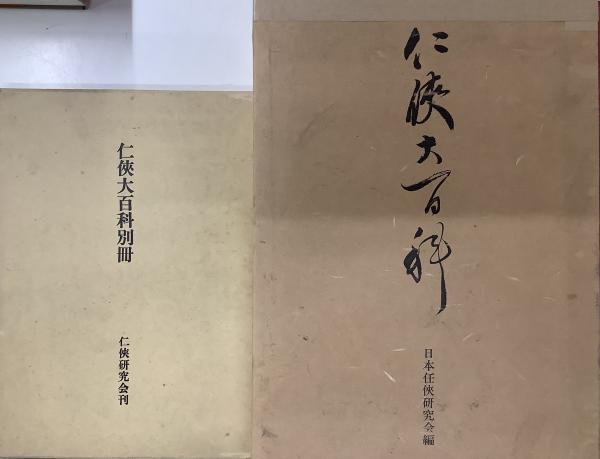 仁俠大百科
日本任俠研究会編
仁俠大百科別冊
仁俠研究会刊